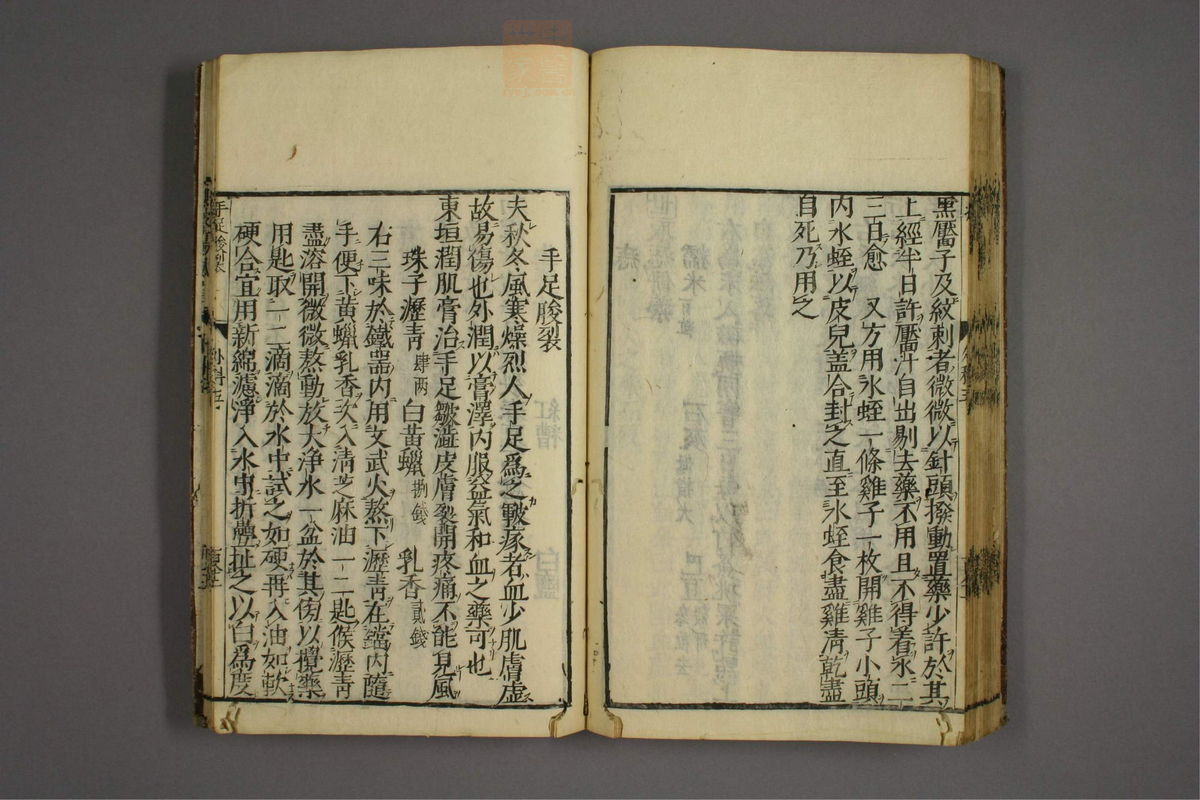 黑靨子及紋刺者微微以針頭撥動置藥少許於其
上經半日許靨汁自出剔去藥不用且不得着水二
三日愈　又方用水蛭一條雞子一枚開雞子小頭
内水蛭以皮兒盖合封之直至水蛭食盡雞清乾盡
自死乃用之
手足皴裂
夫秋冬風寒燥烈人手足爲之皸瘃者血少肌膚虚
故易傷也外潤以膏澤内服益氣和血之藥可也
東垣潤肌膏治手足皺澁皮膚裂開疼痛不能見風
珠子瀝青 肆两　白黃蠟 捌錢　乳香 貳錢
右三味於鐵器内用文武火熬下瀝青在鐺内隨
手便下黃蠟乳香次入清芝麻油一二匙候瀝青
盡溶開微微熬動放大净水一盆於其傍以攪藥
用匙取一二滴滴於水中試之如硬再入油如軟
硬合宜用新綿濾淨入水中折疊扯之以白爲度